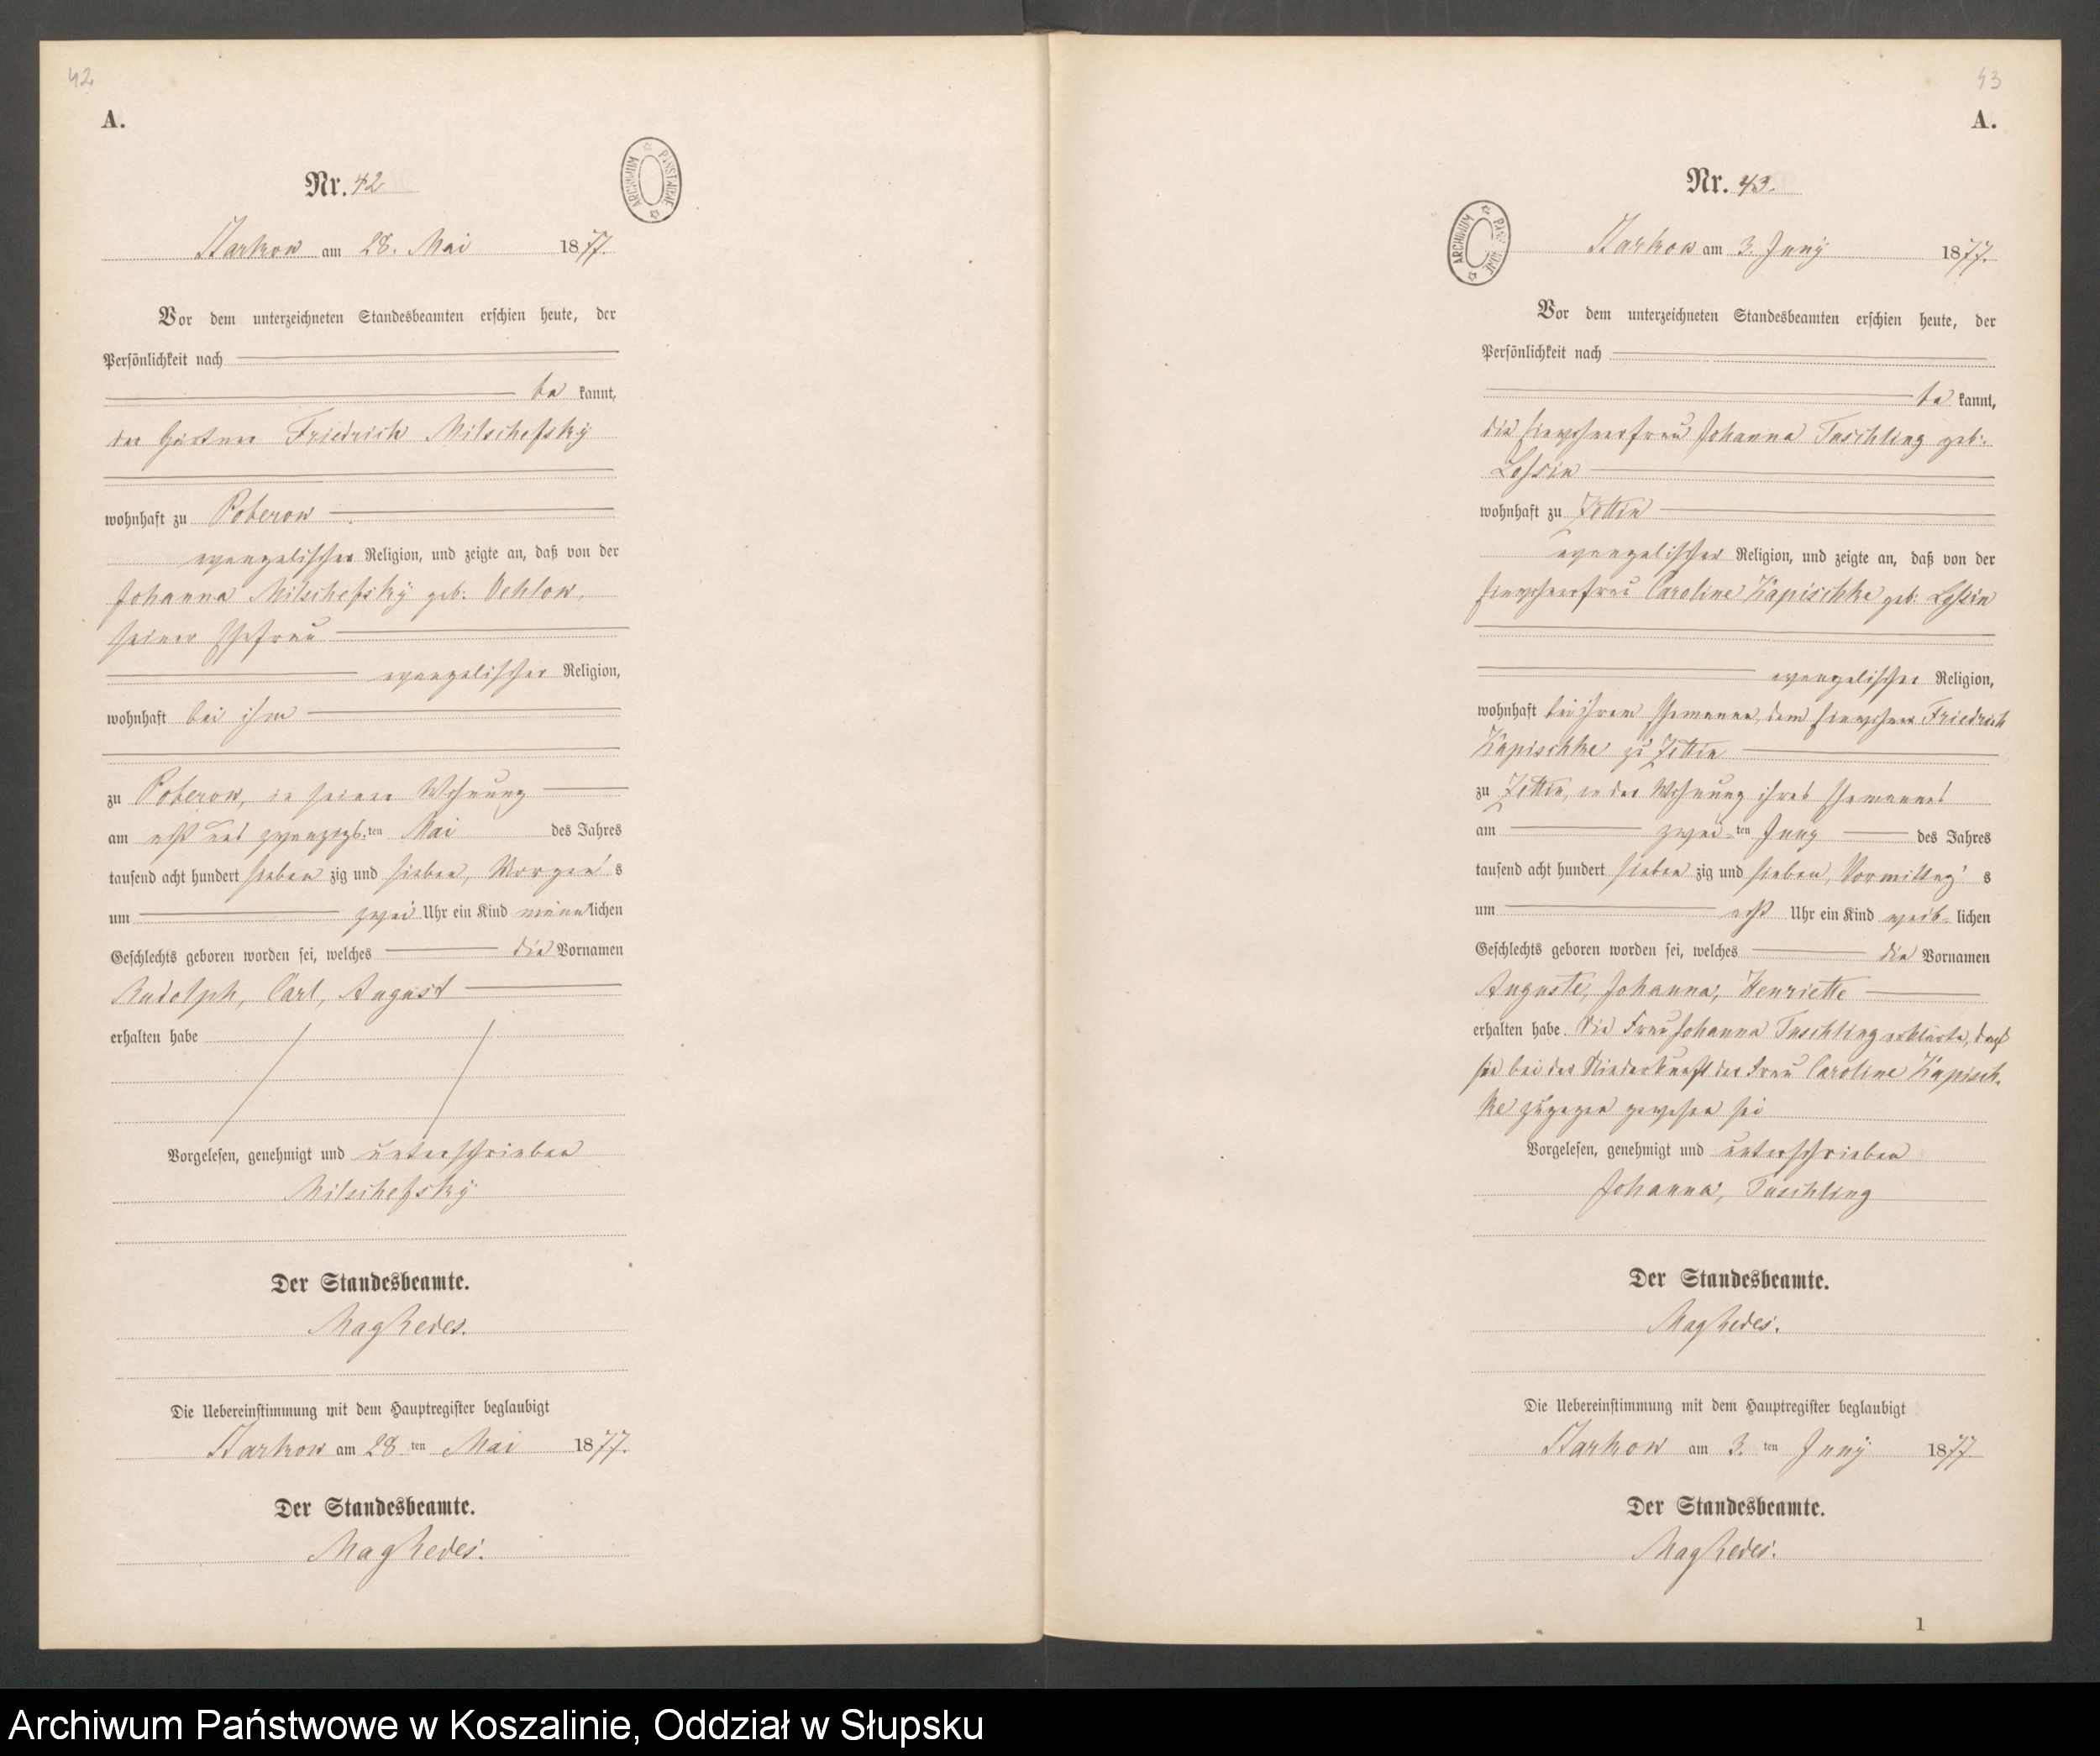 42
A.
Nr. 42
ARCHIWUM PAŃSTWOWE
Startow am 28. Mai 1877.
Vor dem unterzeichneten Standesbeamten erschien heute, der
Persönlichkeit nach
be kannt,
der Gärtner Friedrich Milschefsky
wohnhaft zu Poberow
evangelischer Religion, und zeigte an, daß von der
Johanna Milschefsky geb. Oehlow,
seiner Ehefrau
evangelischer Religion,
wohnhaft bei ihm
zu Poberow, in seiner Wohnung
am acht und zwanzigs ten Mai des Jahres
tausend acht hundert sieben zig und sieben, Morgen s
um zwei Uhr ein Kind männ lichen
Geschlechts geboren worden sei, welches die Vornamen
Rudolph, Carl, August
erhalten habe
Vorgelesen, genehmigt und unterschrieben
Milschefsky
Der Standesbeamte.
Die Uebereinstimmung mit dem Hauptregister beglaubigt
am 28 ten Mai 1877.
Der Standesbeamte.
43
A.
Nr. 43.
ARCHIWUM PAŃSTWOWE
am 3. Juny 1877.
Vor dem unterzeichneten Standesbeamten erschien heute, der
Persönlichkeit nach
be kannt,
die Einwohnerfrau Johanna Tuschling geb.
Lossin
wohnhaft zu Zettin
evangelischer Religion, und zeigte an, daß von der
Einwohnerfrau Caroline Käpischke geb. Lossin
evangelischer Religion,
wohnhaft bei ihrem Ehemanne, dem Einwohner Friedrich
Käpischke zu Zettin
zu Zettin, in der Wohnung ihres Ehemannes
am zwei- ten Juny des Jahres
tausend acht hundert sieben zig und sieben, Vormittag s
um acht Uhr ein Kind weib- lichen
Geschlechts geboren worden sei, welches die Vornamen
Auguste, Johanna, Henriette
erhalten habe. Die Frau Johanna Tuschling erklärte, daß
sie bei der Niederkunft der Frau Caroline Käpisch-
ke zugegen gewesen sei
Vorgelesen, genehmigt und unterschrieben
Johanna, Tuschling
Der Standesbeamte.
Die Uebereinstimmung mit dem Hauptregister beglaubigt
am 3. ten Juny 1877
Der Standesbeamte.
1
Archiwum Państwowe w Koszalinie, Oddział w Słupsku